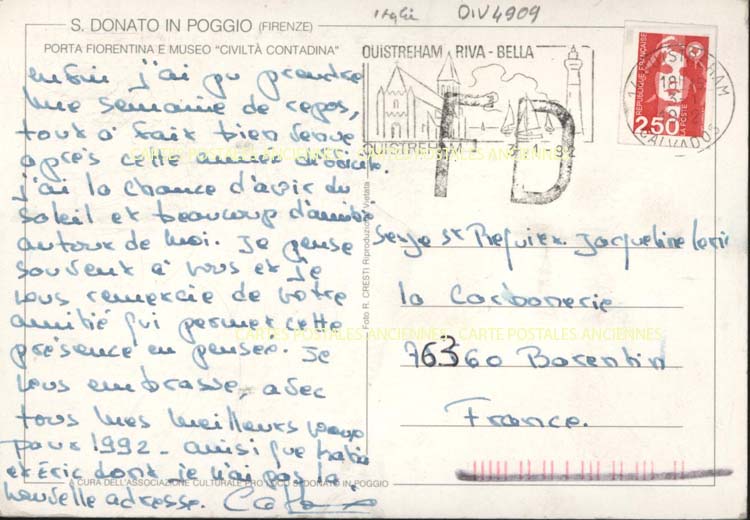 Italie OIV4909
S. DONATO IN POGGIO (FIRENZE)
PORTA FIORENTINA E MUSEO "CIVILTÀ CONTADINA"
OUISTREHAM RIVA-BELLA
OUISTREHAM 3-1-92
FD
REPUBLIQUE FRANÇAISE
LA POSTE
2,50
CALVADOS
enfin j'ai pu prendre
une semaine de repos,
tout à fait bien venue
après cette année
j'ai la chance d'avoir du
soleil et beaucoup d'amitié
autour de moi. Je pense
souvent à vous et je
vous remercie de votre
amitié qui permet cette
présence en pensée. Je
vous embrasse, avec
tous mes meilleurs vœux
pour 1992 - ainsi que
et Éric dont je n'ai pas la
nouvelle adresse.
Serge St Requier. Jacqueline
la Carbonerie
76360 Barentin
France.
Foto R. CRESTI Riproduzione Vietata
CARTES POSTALES ANCIENNES - CARTE POSTALES ANCIENNES
CARTES POSTALES ANCIENNES - CARTE POSTALES ANCIENNES
A CURA DELL'ASSOCIAZIONE CULTURALE PRO LOCO S. DONATO IN POGGIO